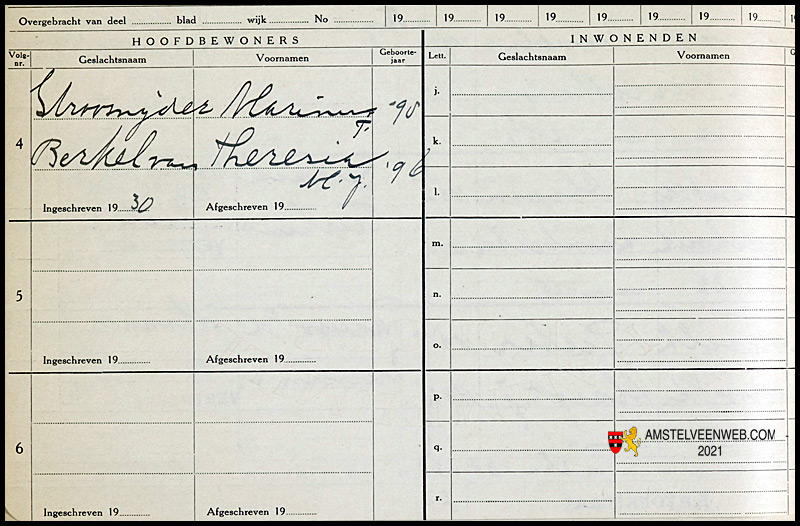 Overgebracht van deel blad wijk No 19 19 19 19 19 19 19 19
HOOFDBEWONERS INWONENDEN
Volg-nr. Geslachtsnaam Voornamen Geboorte-jaar Lett. Geslachtsnaam Voornamen
4 Stroomijder Marinus '98 j.
T.
k.
Berkel van Theresia '96
M.J. l.
Ingeschreven 1930 Afgeschreven 19
m.
5 n.
o.
Ingeschreven 19 Afgeschreven 19
p.
6 q.
AMSTELVEENWEB.COM
2021
r.
Ingeschreven 19 Afgeschreven 19